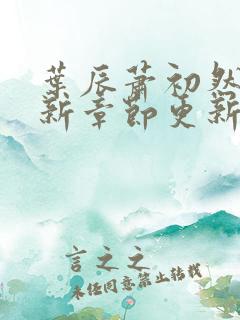 葉辰蕭初然
新章節更新
言之之
未任同意禁止转载